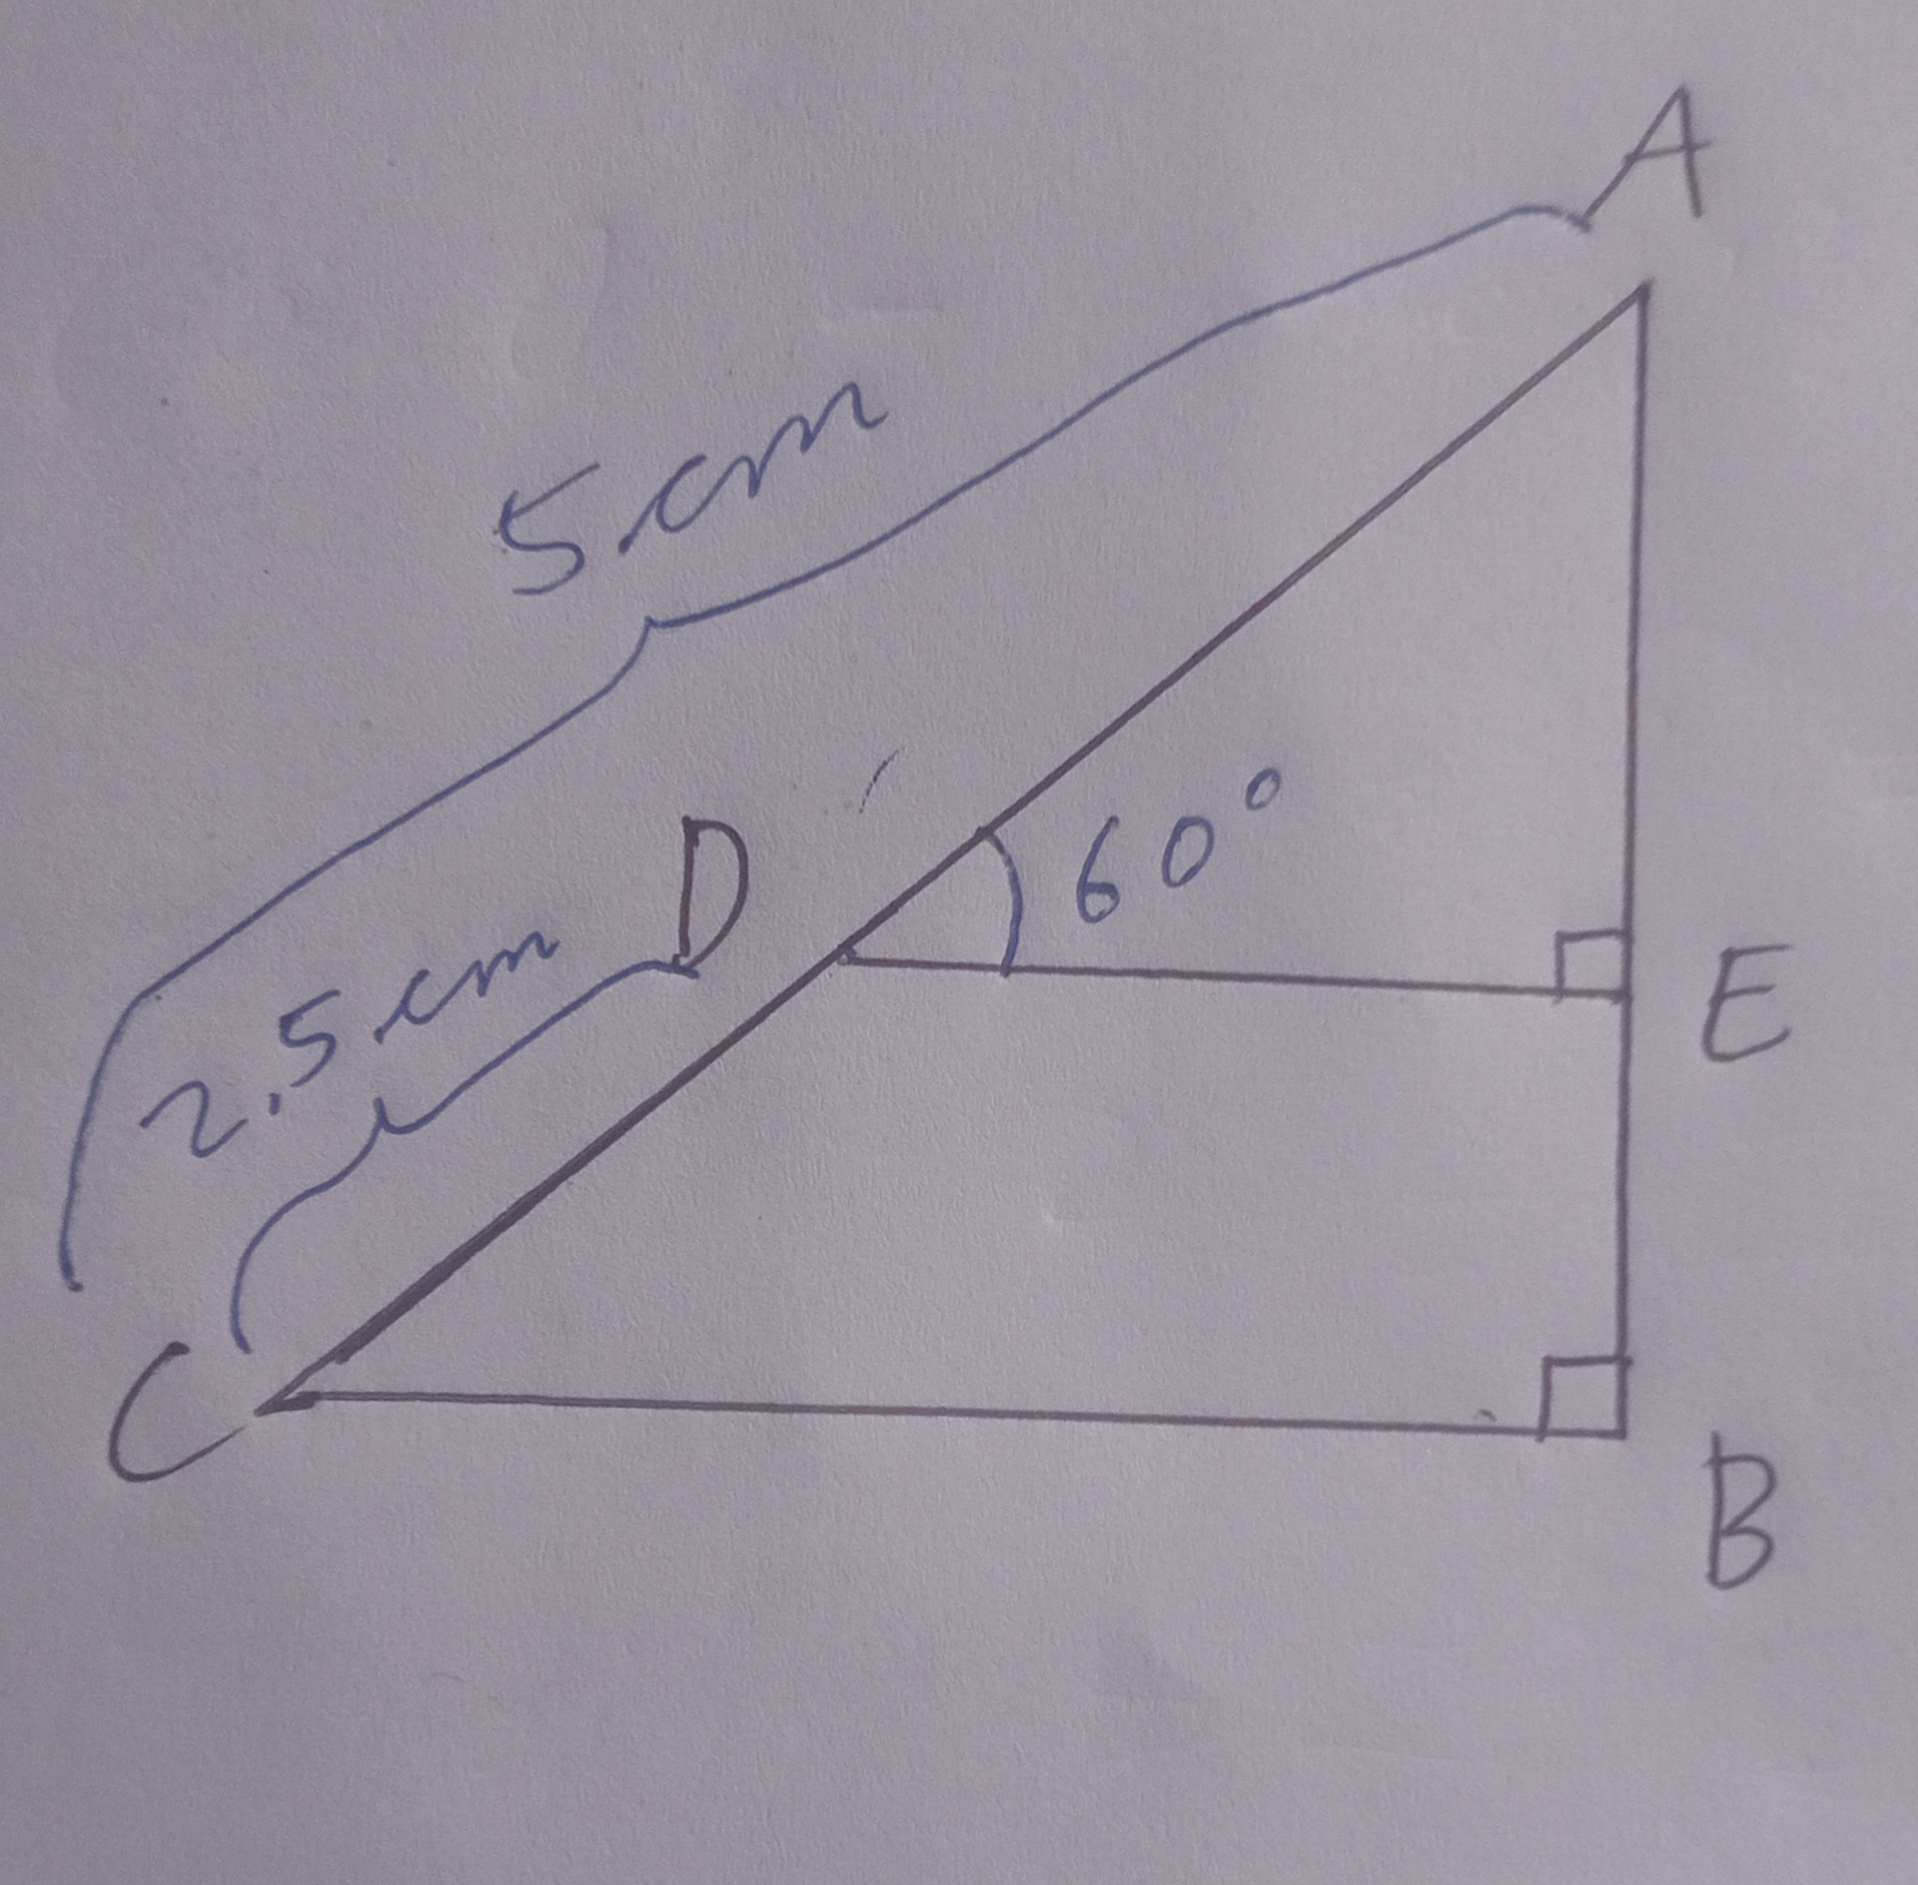 A
5 cm
D
60°
2.5 cm
E
C
B